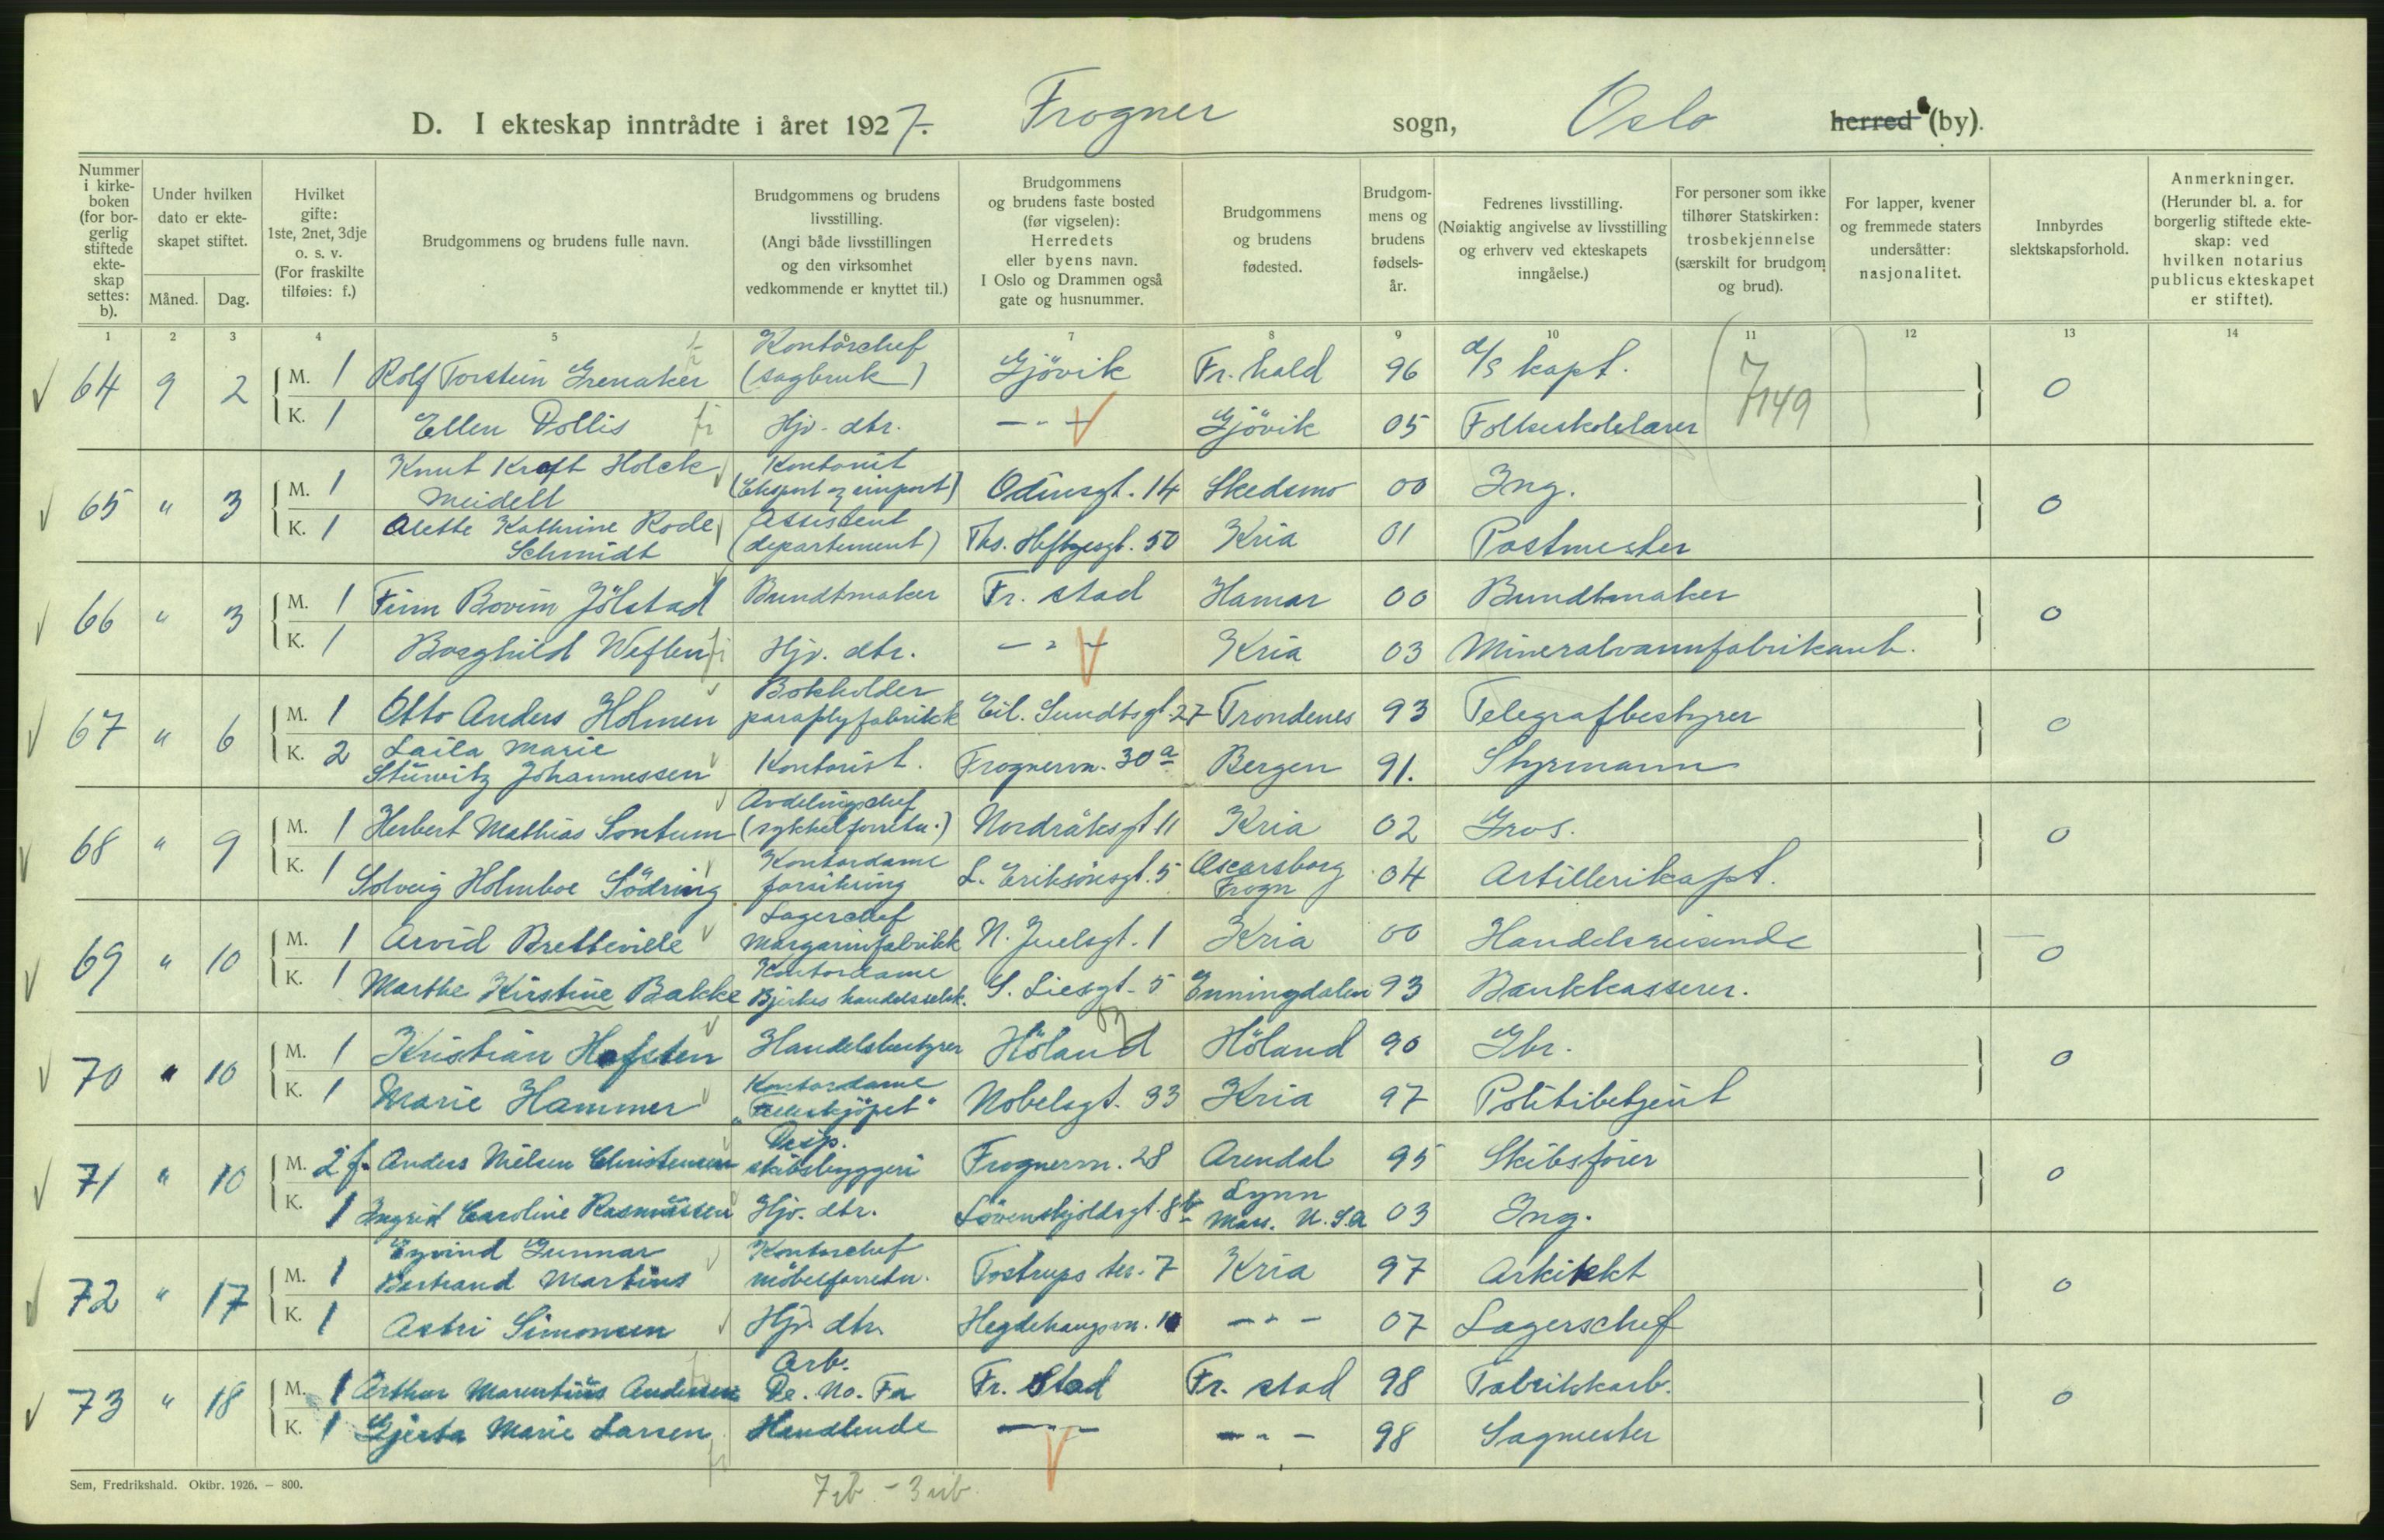 D. I ekteskap inntrådte i året 1927. Frogner sogn, Oslo herred (by).
Nummer i kirke-boken (for bor-gerlig stiftede ekte-skap settes: b).
Under hvilken dato er ekte-skapet stiftet.
Måned. Dag.
Hvilket gifte: 1ste, 2net, 3dje o. s. v. (For fraskilte tilføies: f.)
Brudgommens og brudens fulle navn.
Brudgommens og brudens livsstilling. (Angi både livsstillingen og den virksomhet vedkommende er knyttet til.)
Brudgommens og brudens faste bosted (før vigselen): Herredets eller byens navn. I Oslo og Drammen også gate og husnummer.
Brudgommens og brudens fødested.
Brudgom-mens og brudens fødsels-år.
Fedrenes livsstilling. (Nøiaktig angivelse av livsstilling og erhverv ved ekteskapets inngåelse.)
For personer som ikke tilhører Statskirken: trosbekjennelse (særskilt for brudgom og brud).
For lapper, kvener og fremmede staters undersåtter: nasjonalitet.
Innbyrdes slektskapsforhold.
Anmerkninger. (Herunder bl. a. for borgerlig stiftede ekte-skap: ved hvilken notarius publicus ekteskapet er stiftet).
1 2 3 4 5 7 8 9 10 11 12 13 14
64 9 2 M. 1 Rolf Torstein Grenaker Kontorchef (sagbruk) Gjövik Fr. hald 96 d/s kapt. 0
K. 1 Ellen Dollis Hjv. dtr. - " - Gjövik 05 Folkeskolelærer
7149
65 " 3 M. 1 Knut Kraft Holck Meidell Kontorist (Eksport og import) Odinsgt. 14 Skedsmo 00 Ing. 0
K. 1 Alette Kathrine Rode Schmidt Assistent (departement) Ths. Heftyesgt. 50 Kria 01 Postmester
66 " 3 M. 1 Finn Bovim Jölstad Bundtmaker Fr. stad Hamar 00 Bundtmaker 0
K. 1 Borghild Weflen Hjv. dtr. - " - Kria 03 Mineralvannfabrikant.
67 " 6 M. 1 Otto Anders Holmen Bokholder paraplyfabrikk Eil. Sundtsgt. 27 Trondenes 93 Telegrafbestyrer 0
K. 2 Laila Marie Stüwitz Johannessen Kontorist. Frognervn. 30a Bergen 91. Styrmann
68 " 9 M. 1 Herbert Mathias Sontum Avdelingschef (sykkelforretn.) Nordråksgt 11 Kria 02 Gros. 0
K. 1 Solveig Holmboe Södring Kontordame forsikring L. Eriksönsgt. 5 Oscarsborg Frogn 04 Artillerikapt.
69 " 10 M. 1 Arvid Bretteville Lagerchef Margarinfabrikk N. Juelsgt. 1 Kria 00 Handelsreisende 0
K. 1 Marthe Kirstine Bakke Kontordame Bjerkes handelsselsk. S. Liesgt. 5 Enningdalen 93 Bankkasserer.
70 " 10 M. 1 Kristian Hofsten Handelsbestyrer Höland Höland 90 Gbr. 0
K. 1 Marie Hammer Kontordame "Felleskjöpet" Nobelsgt. 33 Kria 97 Politibetjent
71 " 10 M. 2 f. Anders Nielsen Christensen Disp. skibsbyggeri Frognervn. 28 Arendal 95 Skibsfører 0
K. 1 Ingrid Caroline Rasmussen Hjv. dtr. Lövenskjoldsgt. 8b Lynn Mass. U.S.A 03 Ing.
72 " 17 M. 1 Eyvind Gunnar Bertrand Martins Kontorchef möbelforretn. Tostrups ter. 7 Kria 97 Arkitekt 0
K. 1 Astri Simonsen Hjv. dtr. Hegdehaugsvn. 10 - " - 07 Lagerschef
73 " 18 M. 1 Arthur Marentius Andersen Arb. De. No. Fa Fr. Stad Fr. stad 98 Fabrikkarb. 0
K. 1 Gjerta Marie Larsen Handlende - " - - " - 98 Sagmester
Sem, Fredrikshald. Oktbr. 1926. — 800.
7 ib - 3 uib